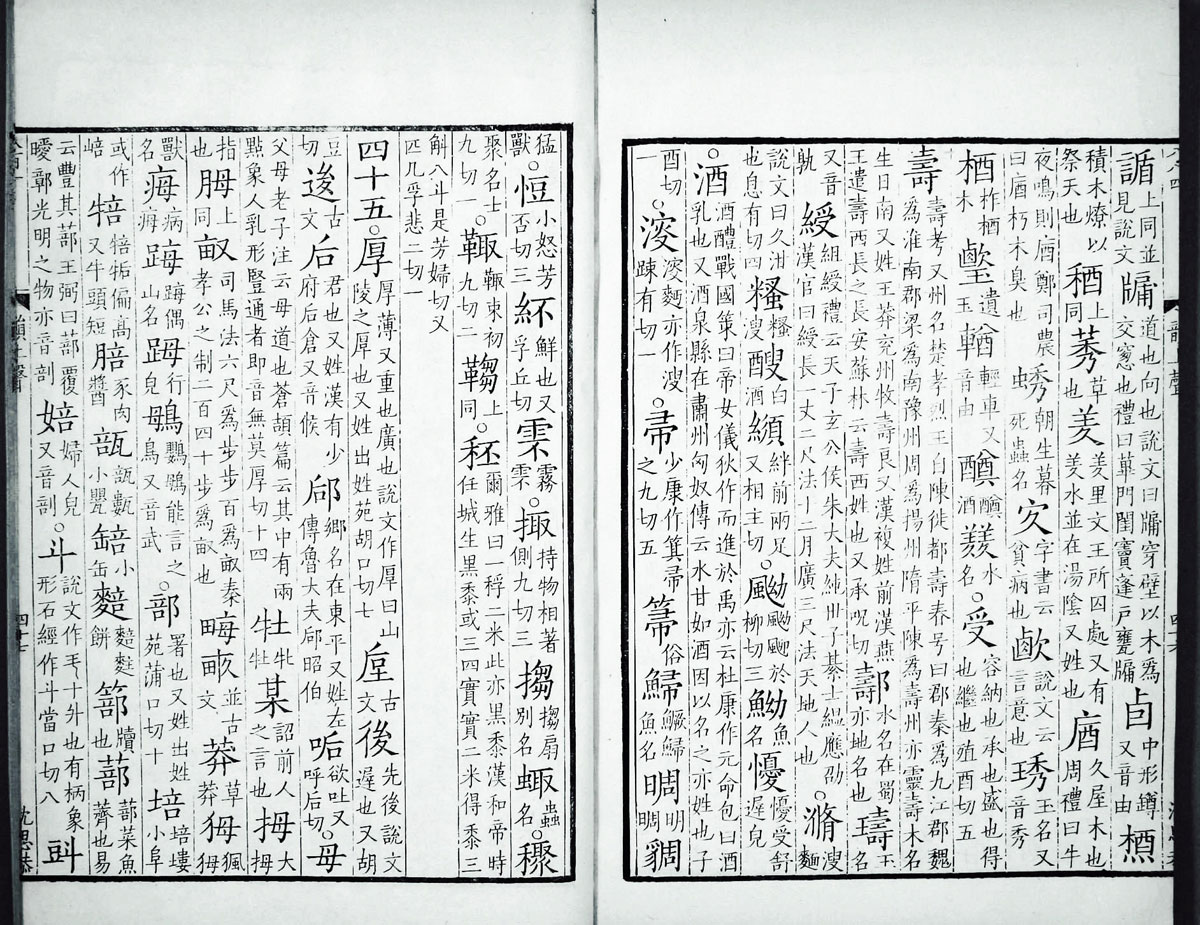 䛻上同並見說文牖道也向也說文曰牖穿壁以木為交窓也禮曰蓽門閨竇蓬戶甕牖卣中形罇又音由槱
積木燎以祭天也䄂上同莠草也羑羑里文王所囚處又有羑水並在湯陰又姓也庮久屋木也周禮曰牛
夜鳴則庮鄭司農曰庮朽木臭也蜏朝生暮死蟲名㝌字書云貧病也歄說文云言意也琇玉名又音秀
栖柞栖木遺玉輶輕車又音由酋䤖酒羐水名○受容納也承也盛也得也繼也殖酉切五
壽壽考又州名楚孝烈王自陳徙都壽春号曰郡秦為九江郡魏為淮南郡梁為南豫州周為揚州隋平陳為壽州亦靈壽木名
生日南又姓王莽兗州牧壽良又漢複姓前漢燕王遣壽西長之長安蘇林云壽西姓也又承呪切鄩水名在蜀亦地名也璹玉名
又音孰綬組綬禮云天子玄公侯朱大夫純世子綦士縕應劭漢官曰綬長一丈二尺法十二月廣三尺法天地人也滫溲麵
說文曰久泔也息有切四糔糔溲醙酒䋺絆前兩足又相主切○䬀䬀飀於柳切三鮋魚懮懮受舒遲皃
○酒酒醴戰國策曰帝女儀狄作而進於禹亦云杜康作元命包曰酒乳也又酒泉縣在肅州匈奴傳云水甘如酒因以名之亦姓也子
酉切一○溲溲麵亦作溲踈有切一○帚少康作箕帚之九切五箒俗鯞鱖鯞魚名晭明晭䝬
猛獸○㤱小怒芳否切三紑鮮也又孚丘切䨏霧䨏○掫持物相著側九切三㨨㨨扇別名蝂蟲名○䅳
聚名士九切一○䩳䩳束初九切二䩖上同○秠爾雅曰一稃二米此亦黑黍漢和帝時任城生黑黍或三四實實二米得黍三
斛八斗是芳婦切又匹几孚悲二切一
四十五○厚厚薄又重也廣也說文作厚曰山陵之厚也又姓出姓苑胡口切七垕古文後先後說文遟也又胡
豆切逡古文后君也又姓漢有少府后倉又音候郈鄉名在東平又姓左傳魯大夫郈昭伯㖃欲吐又呼后切○母
父母老子注云母道也蒼頡篇云其中有兩點象人乳形豎通者即音無莫厚切十四牡牝牡某詔前人之言也拇大拇
指也胟上同畝司馬法六尺為步步百為畝秦孝公之制二百四十步為畝也畮畞並古文莽草莽㺳㺃㺳
獸名痗病痗踇踇偶山名䟨行皃鴟鸚䳇能言之鳥又音武○部署也又姓出姓苑蒲口切十培培塿小阜
或作㟝犃犃㸸偏高又牛頭短䏽豕肉醬瓿瓿甊小甖䍌小缶䴺䴺䴹餅篰牘也蔀蔀菜魚薺也易
云豐其蔀王弼曰蔀覆曖鄣光明之物亦音剖婄婦人皃又音剖○斗說文作㪷十升也有柄象形石經作斗當口切八㪷